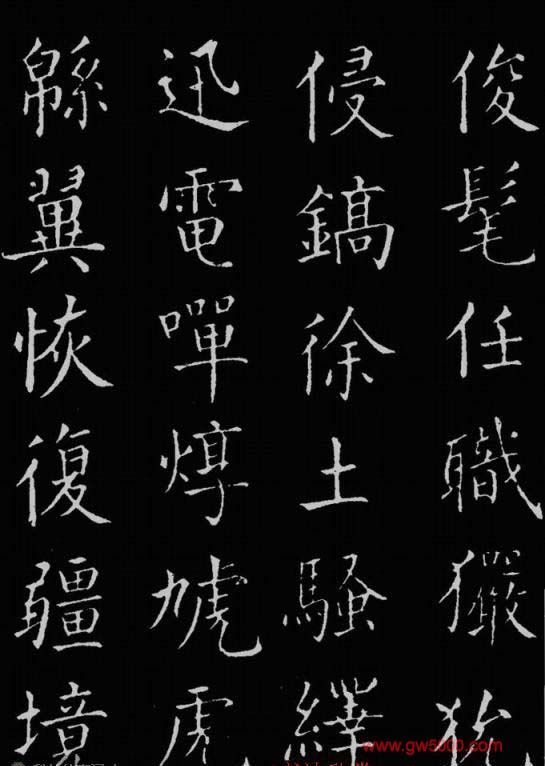 俊髦任職玁狁
侵鎬徐土騷繹
迅電嘽焞虓虎
緜翼恢復疆境
www.gw5000.com